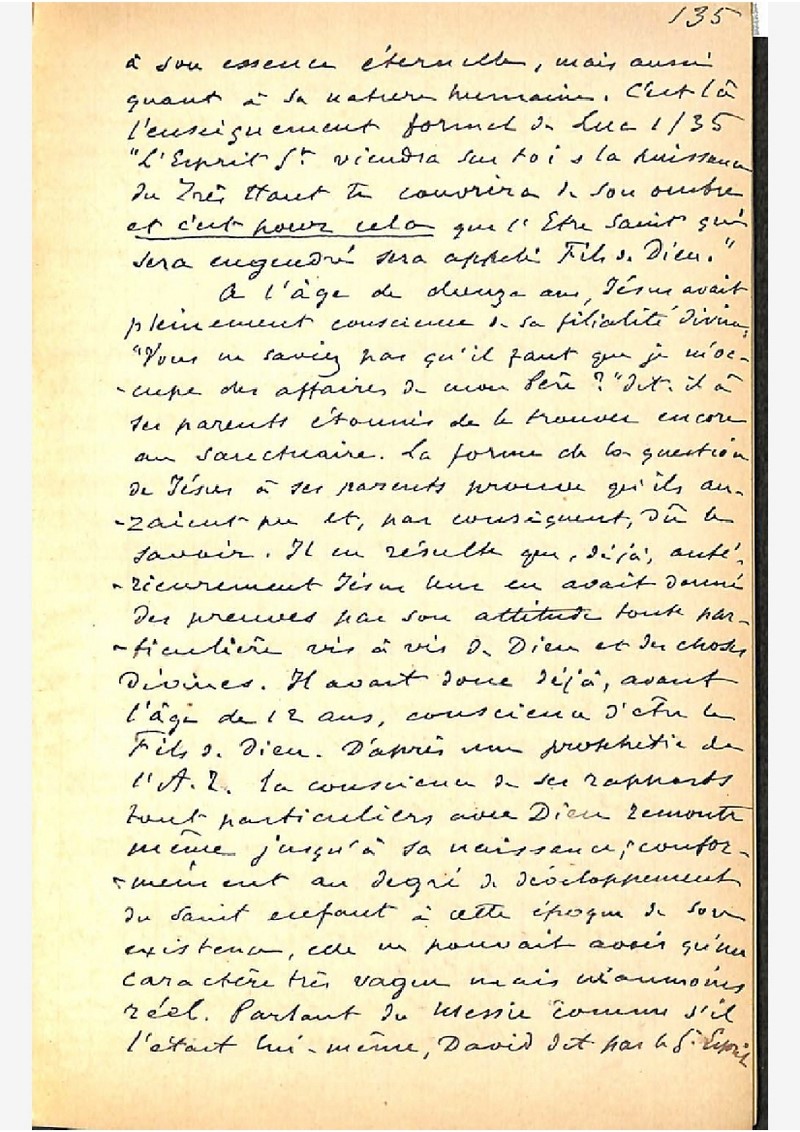 135
à son essence éternelle, mais aussi
quant à sa nature humaine. C'est là
l'enseignement formel de Luc 1/35
"L'Esprit St viendra sur toi & la puissance
du Très Haut te couvrira de son ombre
et c'est pour cela que l'Etre Saint qui
sera engendré sera appelé Fils de Dieu."
A l'âge de douze ans, Jésus avait
pleinement conscience de sa filialité divine,
"Vous ne saviez pas qu'il faut que je m'oc-
-cupe des affaires de mon Père?" dit-il à
ses parents étonnés de le trouver encore
au sanctuaire. La forme de la question
de Jésus à ses parents prouve qu'ils au-
-raient pu et, par conséquent, dû le
savoir. Il en résulte que, déjà, anté-
-rieurement Jésus leur en avait donné
des preuves par son attitude toute par-
-ticulière vis à vis de Dieu et des choses
Divines. Il avait donc déjà, avant
l'âge de 12 ans, conscience d'être le
Fils de Dieu. D'après une prophétie de
l'A.T. la conscience de ses rapports
tout particuliers avec Dieu remonte
même jusqu'à sa naissance; confor-
-mément au degré de développement
du saint enfant à cette époque de son
existence, elle ne pouvait avoir qu'un
caractère très vague mais néanmoins
réel. Parlant du Messie comme s'il
l'était lui-même, David dit par le St Esprit